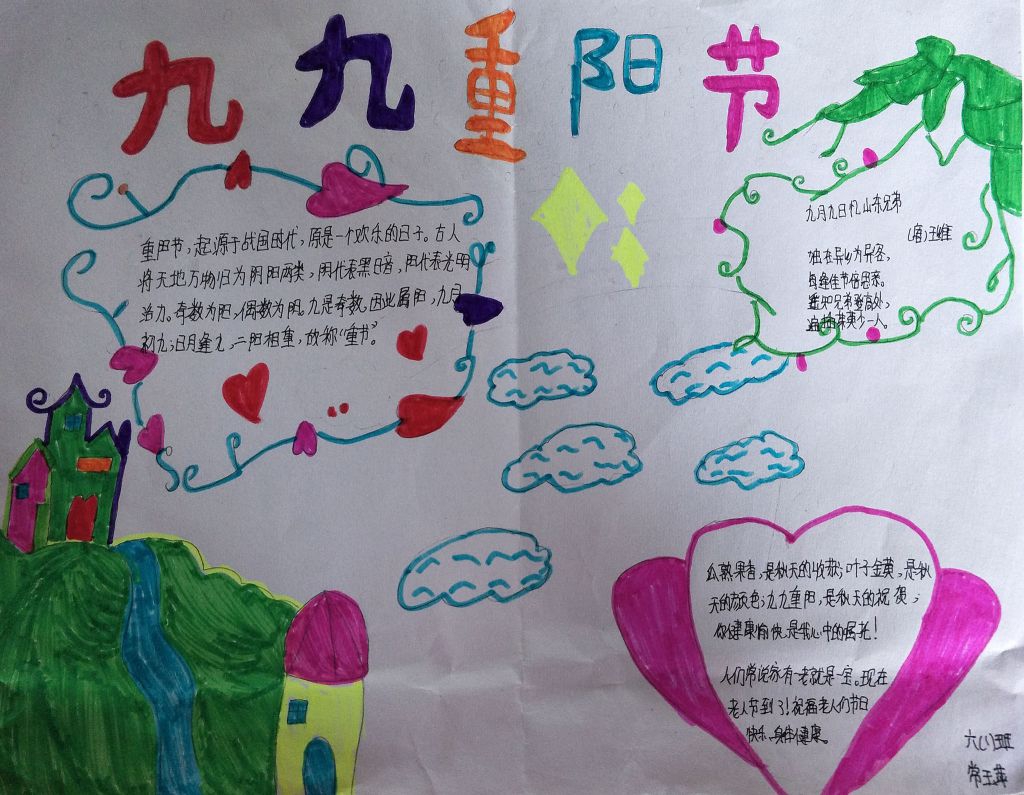 九九重阳节
重阳节，起源于战国时代，原是一个欢乐的日子。古人
将天地万物归为阴阳两类，阴代表黑暗，阳代表光明
活力。奇数为阳，偶数为阴。九是奇数，因此属阳，九月
初九，日月逢九，二阳相重，故称“重节”。
九月九日忆山东兄弟
(唐)王维
独在异乡为异客，
每逢佳节倍思亲。
遥知兄弟登高处，
遍插茱萸少一人。
瓜熟果香，是秋天的收获；叶子金黄，是秋
天的颜色；九九重阳，是秋天的祝贺；
你健康愉快，是我心中的嘱托！
人们常说家有一老就是一宝。现在
老人节到了！祝福老人们节日
快乐、身体健康。
六(1)班
常玉萍